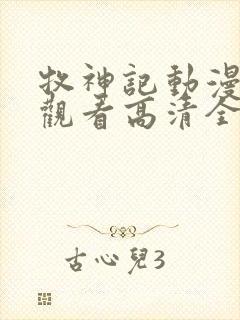 牧神記動漫
觀看高清全
古心兒3